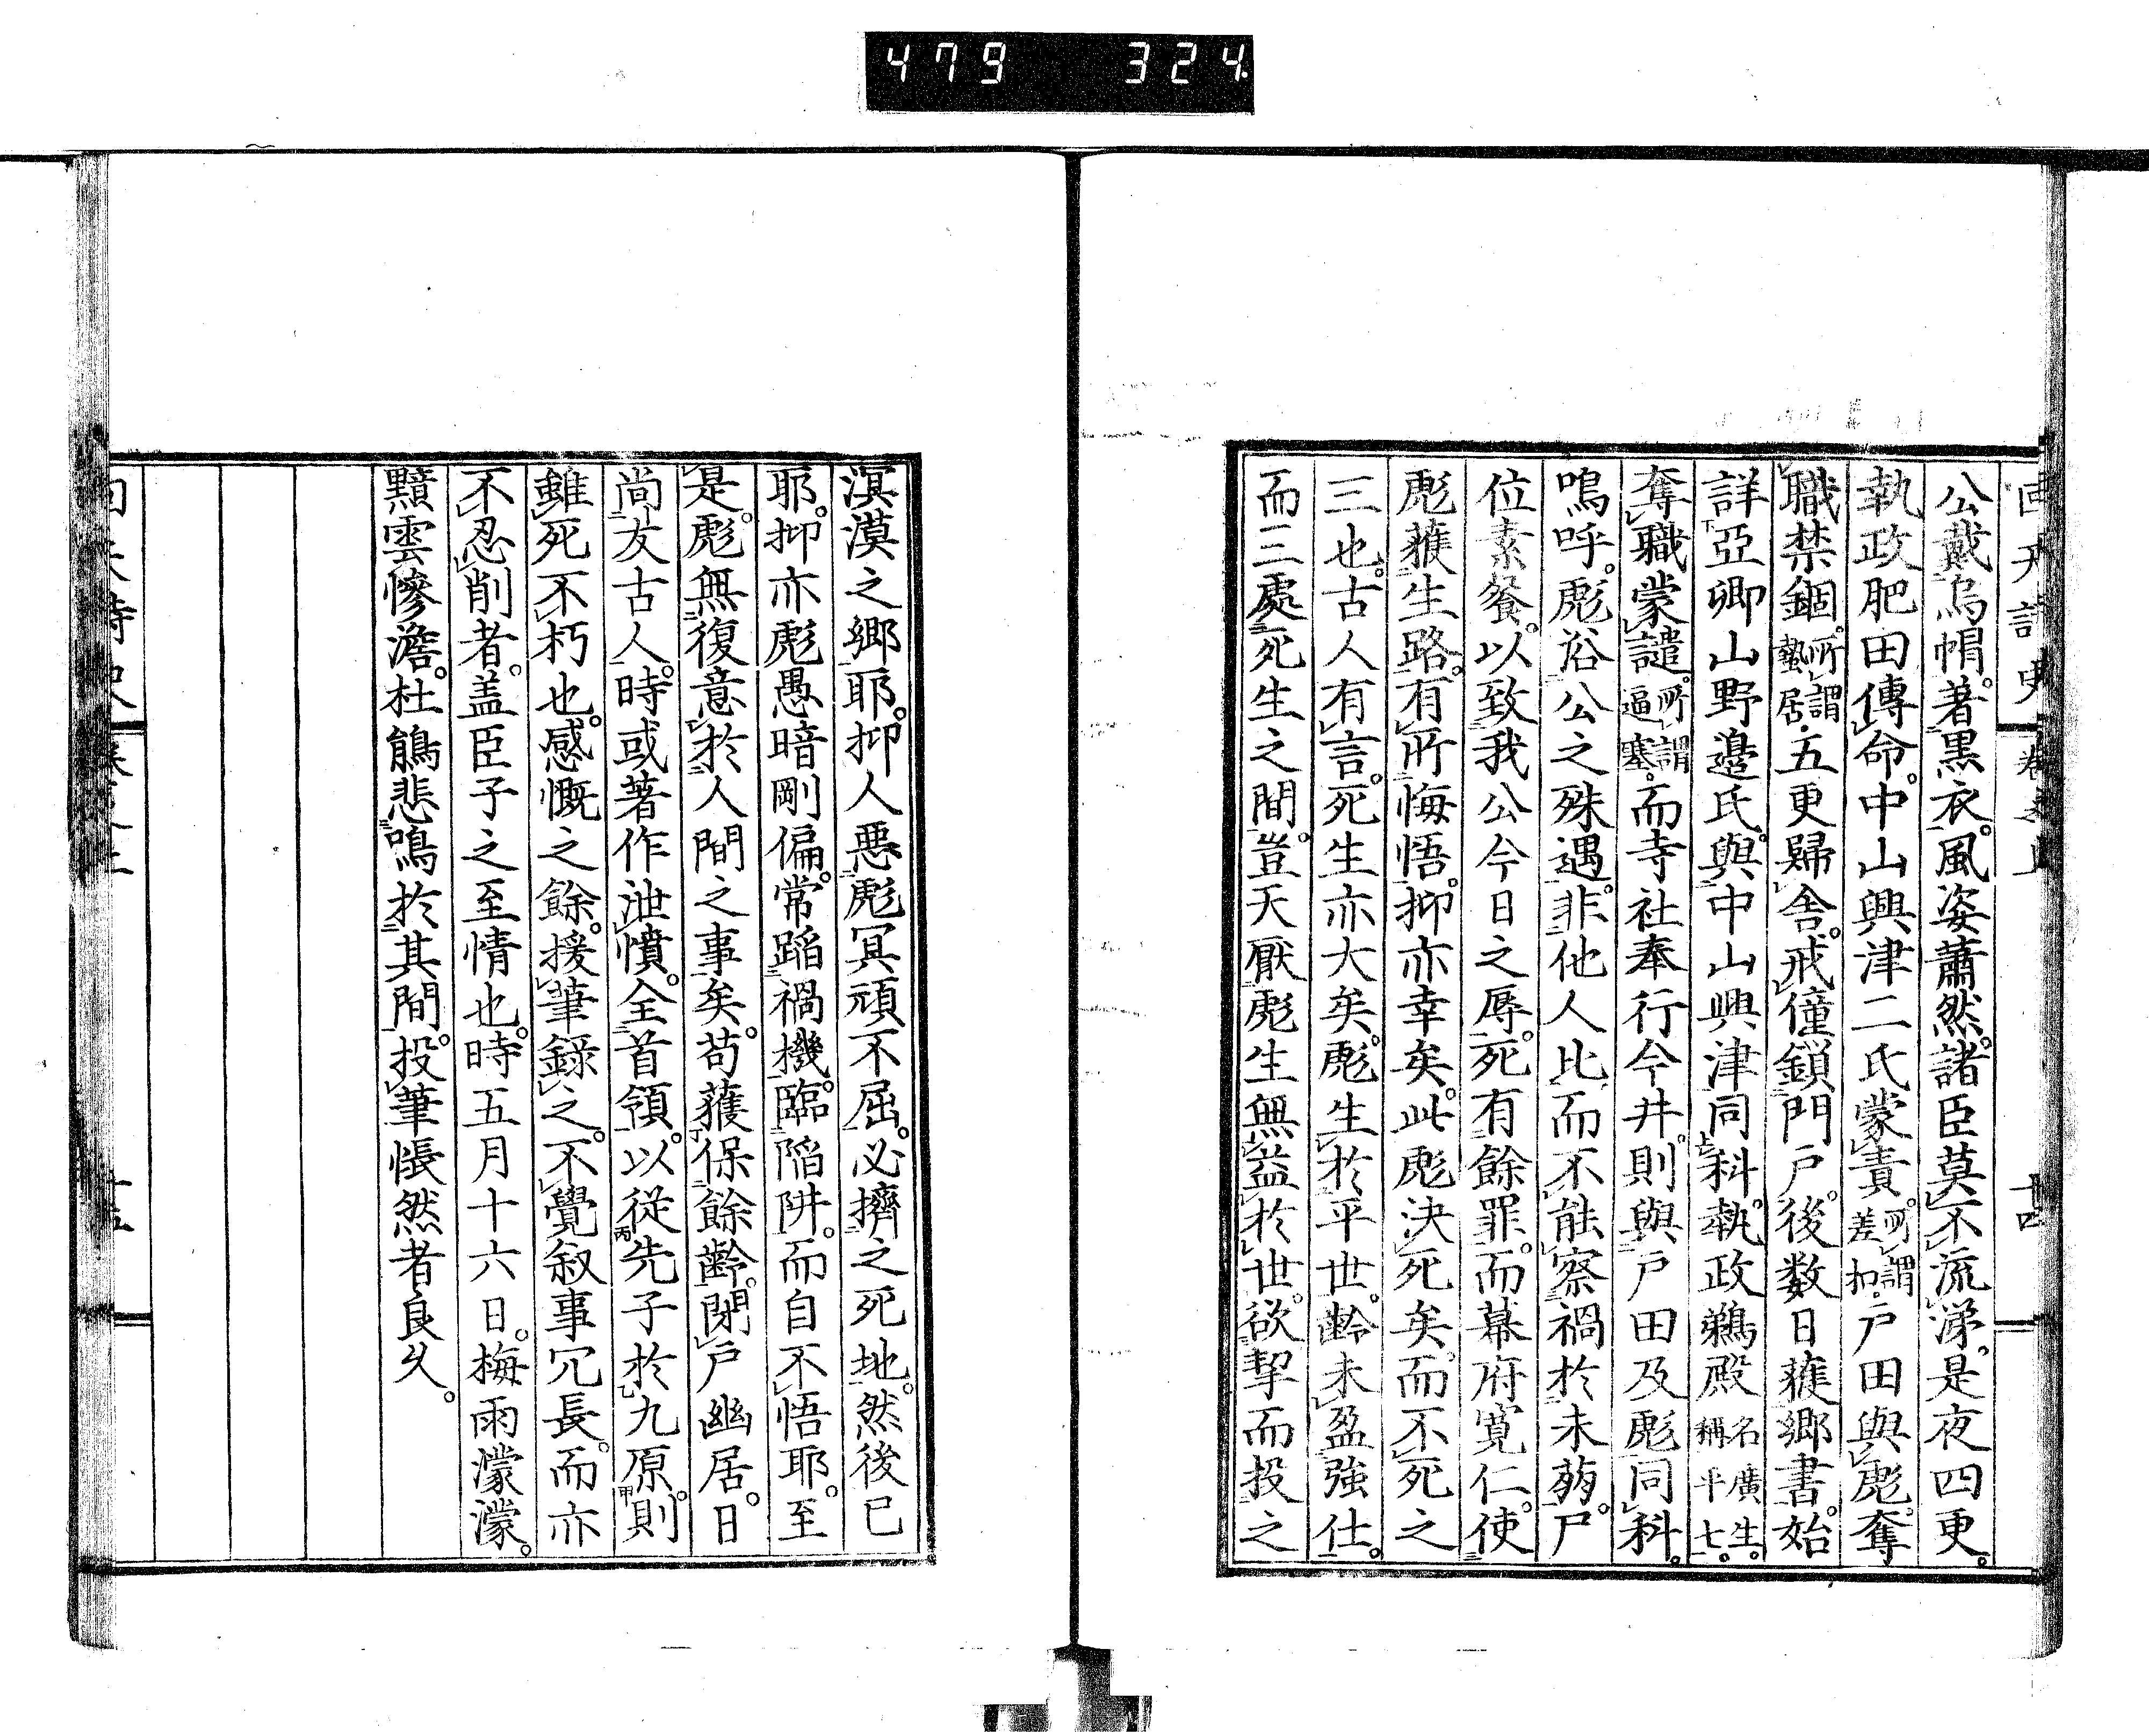 479 324
回天詩史 卷之上 十四
公戴烏帽。著黒衣。風姿蕭然。諸臣莫不流涕。是夜四更。
執政肥田傳命。中山興津二氏蒙責。所謂差扣。戸田與彪奪
職禁錮。所謂蟄居。五更歸舎。戒僮鎖門戸。後数日獲郷書。始
詳亞卿山野邊氏。與中山興津同科。執政鵜殿名廣生。稱平七。
奪職蒙譴。所謂逼塞。而寺社奉行今井。則與戸田及彪同科。
嗚呼。彪浴公之殊遇。非他人比。而不能察禍於未萠。尸
位素餐。以致我公今日之辱。死有餘罪。而幕府寛仁。使
彪獲生路。有所悔悟。抑亦幸矣。此彪決死矣。而不死之
三也。古人有言。死生亦大矣。彪生於平世。齡未盈強仕。
而三處死生之間。豈天厭彪生無益於世。欲挈而投之
溟漠之郷耶。抑人惡彪冥頑不屈。必擠之死地。然後已
耶。抑亦彪愚暗剛偏。常蹈禍機。臨陥阱。而自不悟耶。至
是。彪無復意於人間之事矣。苟獲保餘齡。閉戸幽居。日
尚友古人。時或著作泄憤。全首領。以従先子於九原。則
雖死不朽也。感慨之餘。援筆錄之。不覺叙事冗長。而亦
不忍削者。盖臣子之至情也。時五月十六日。梅雨濛濛。
黯雲慘澹。杜鵑悲鳴於其間。投筆悵然者良久。